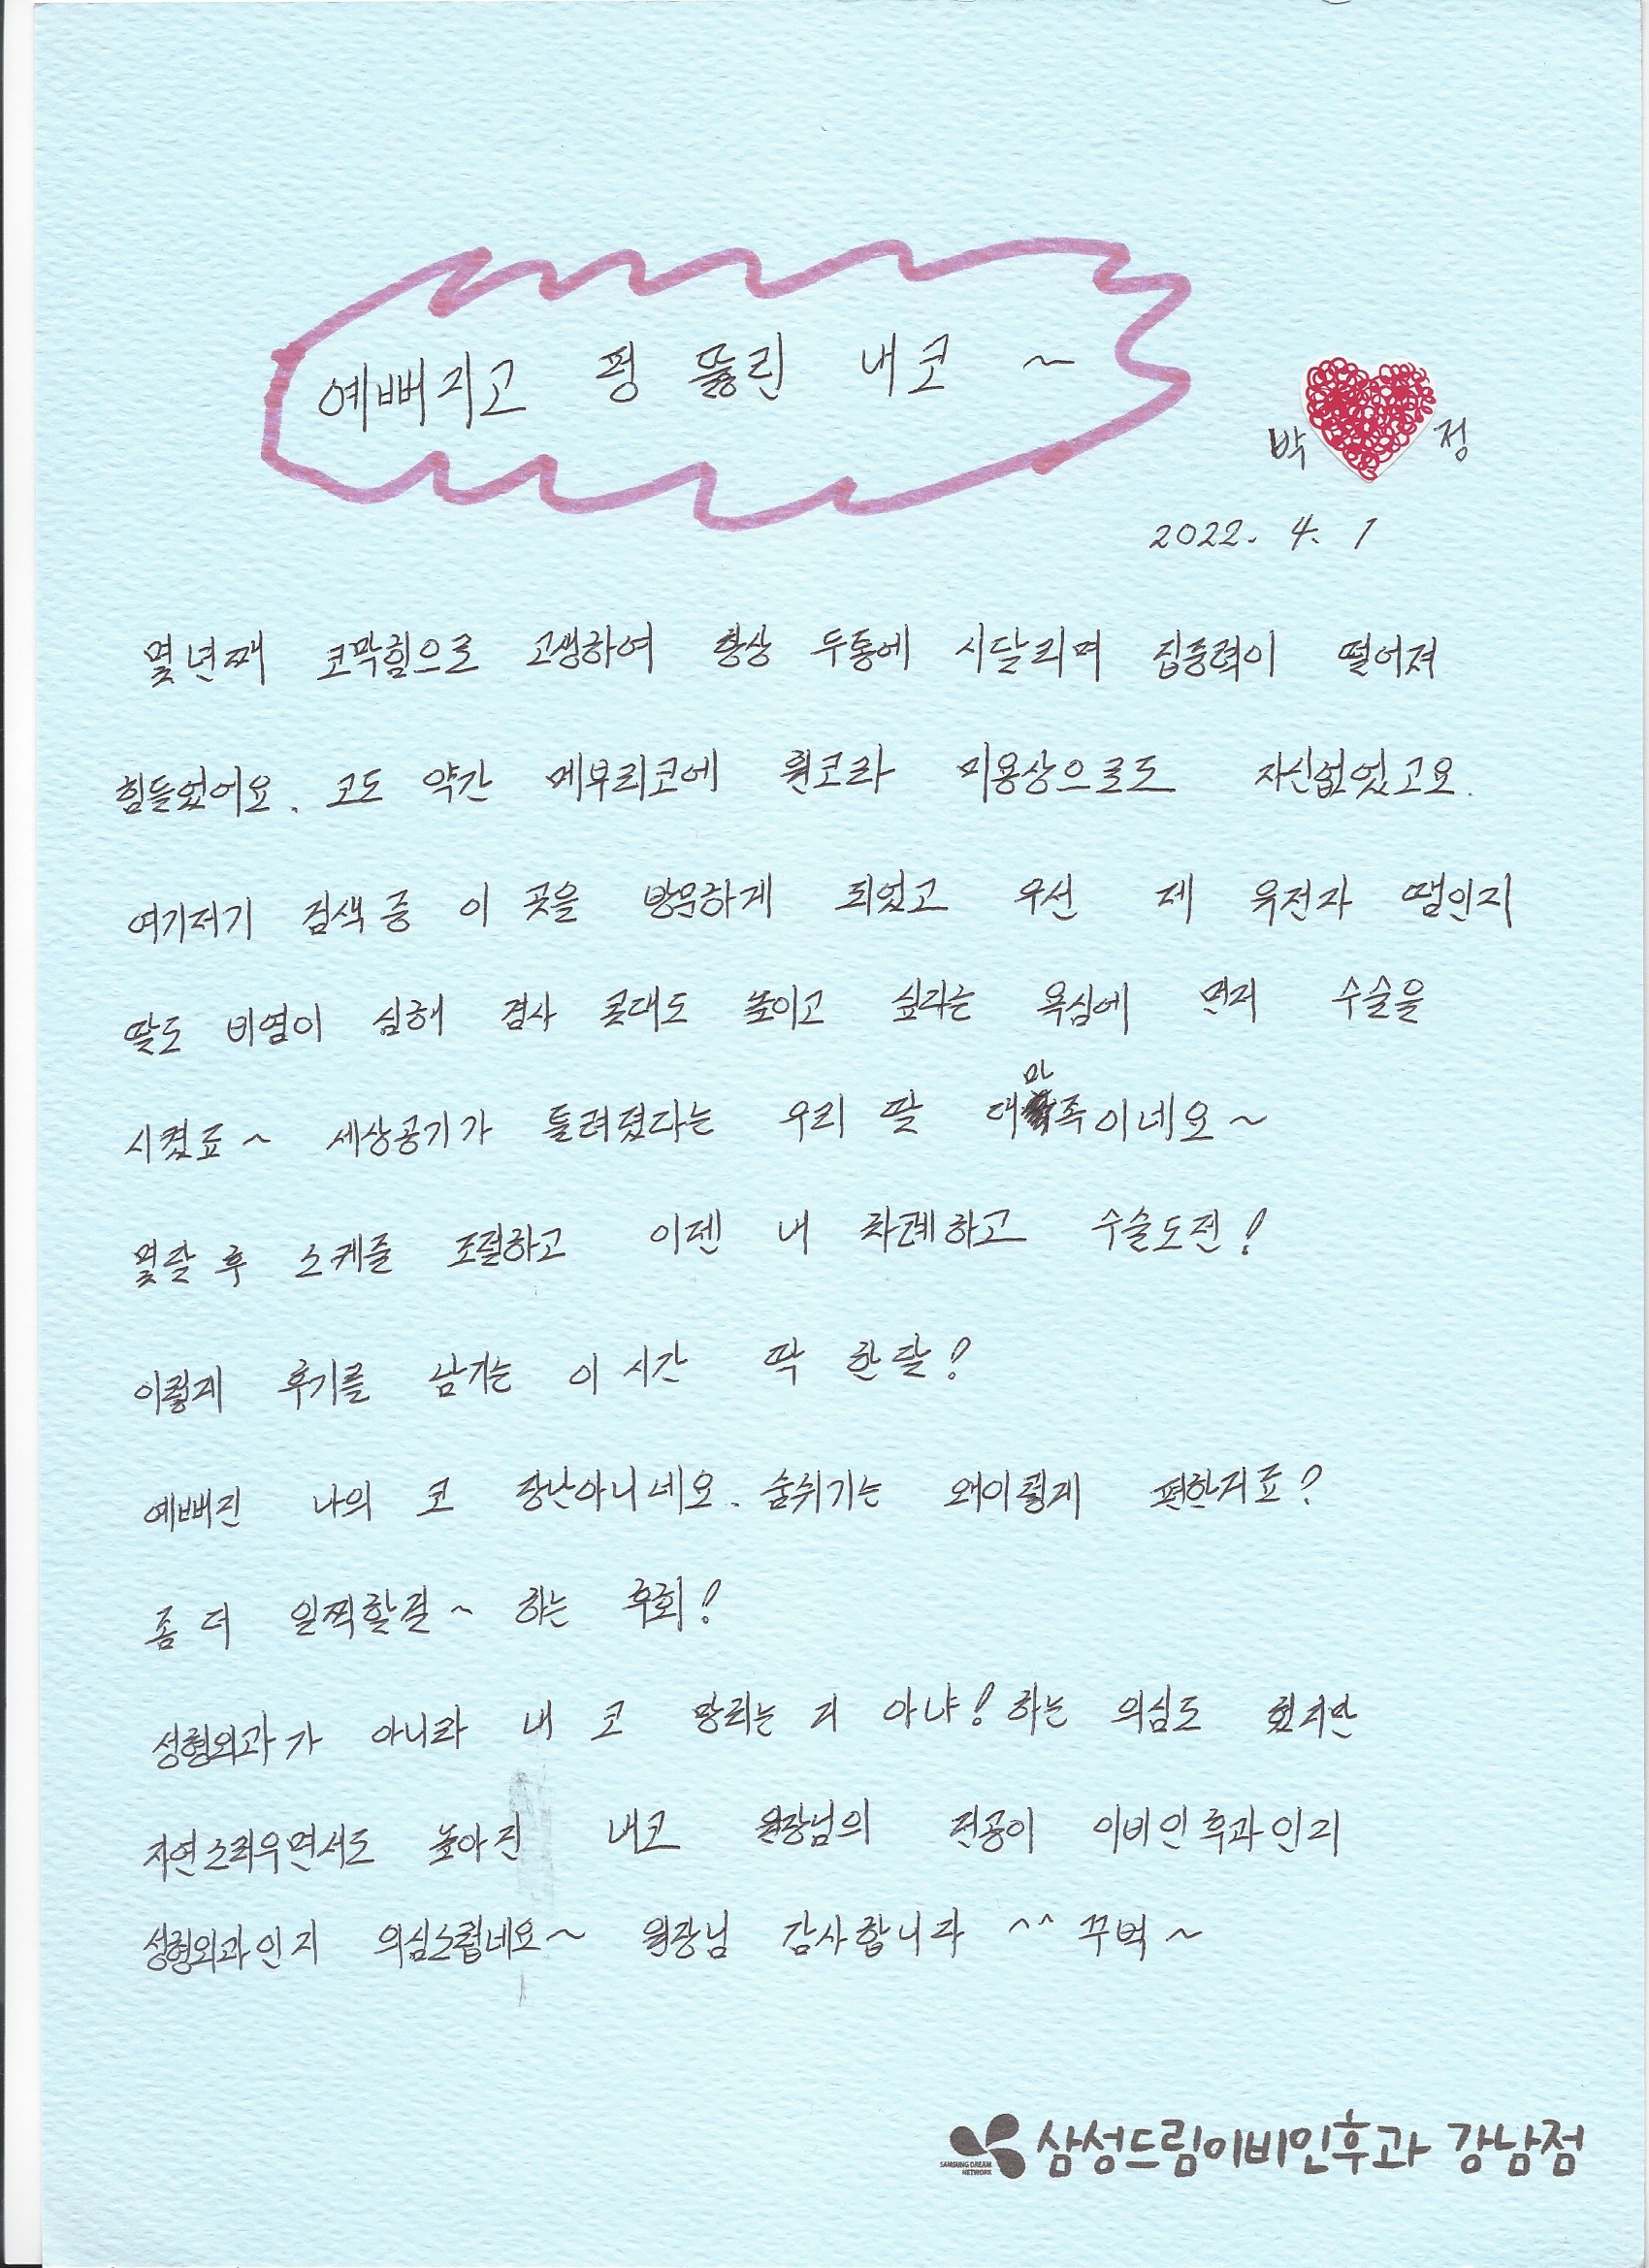 예뻐지고 펑 뚫린 내코 ~
박 정
2022. 4. 1
몇년째 코막힘으로 고생하여 항상 두통에 시달리며 집중력이 떨어져
힘들었어요. 코도 약간 메부리코에 휜코라 미용상으로도 자신없었고요.
여기저기 검색중 이 곳을 방문하게 되었고 우선 제 유전자 땜인지
딸도 비염이 심해 겸사 콧대도 높이고 싶다는 욕심에 먼저 수술을
시켰죠~ 세상공기가 틀려졌다는 우리 딸 대만족이네요~
몇달 후 스케줄 조절하고 이젠 내 차례하고 수술도전!
이렇게 후기를 남기는 이 시간 딱 한달!
예뻐진 나의 코 장난아니네요. 숨쉬기는 왜이렇게 편한지죠?
좀 더 일찍할걸~ 하는 후회!
성형외과가 아니라 내 코 망치는 지 아냐! 하는 의심도 했지만
자연스러우면서도 높아진 내코 원장님의 전공이 이비인후과인지
성형외과인지 의심스럽네요~ 원장님 감사합니다 ^^ 꾸벅~
SAMSUNG DREAM
NETWORK
삼성드림이비인후과 강남점